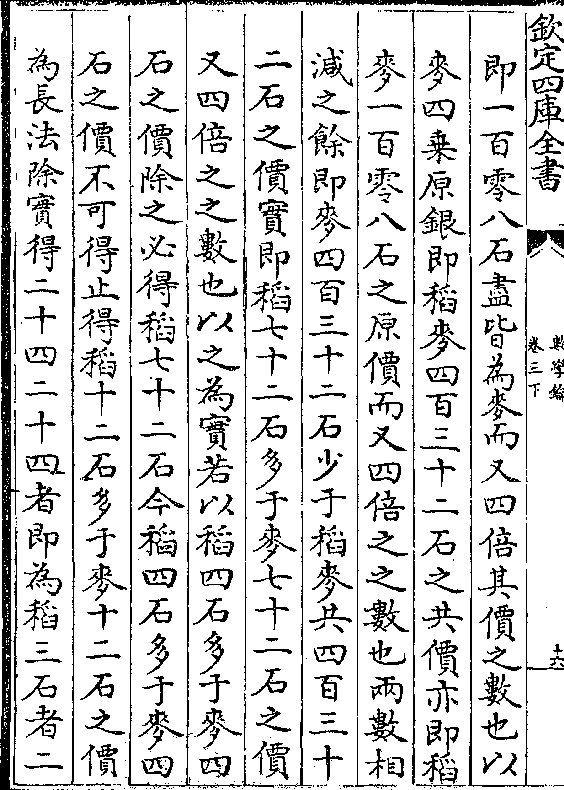 欽定四庫全書
數學鑰
卷三下
十六
即一百零八石盡皆為麥而又四倍其價之數也以
麥四乗原銀即稻麥四百三十二石之共價亦即稻
麥一百零八石之原價而又四倍之之數也兩數相
減之餘即麥四百三十二石少于稻麥共四百三十
二石之價實即稻七十二石多于麥七十二石之價
又四倍之之數也以之為實若以稻四石多于麥四
石之價除之必得稻七十二石今稻四石多于麥四
石之價不可得止得稻十二石多于麥十二石之價
為長法除實得二十四二十四者即為稻三石者二